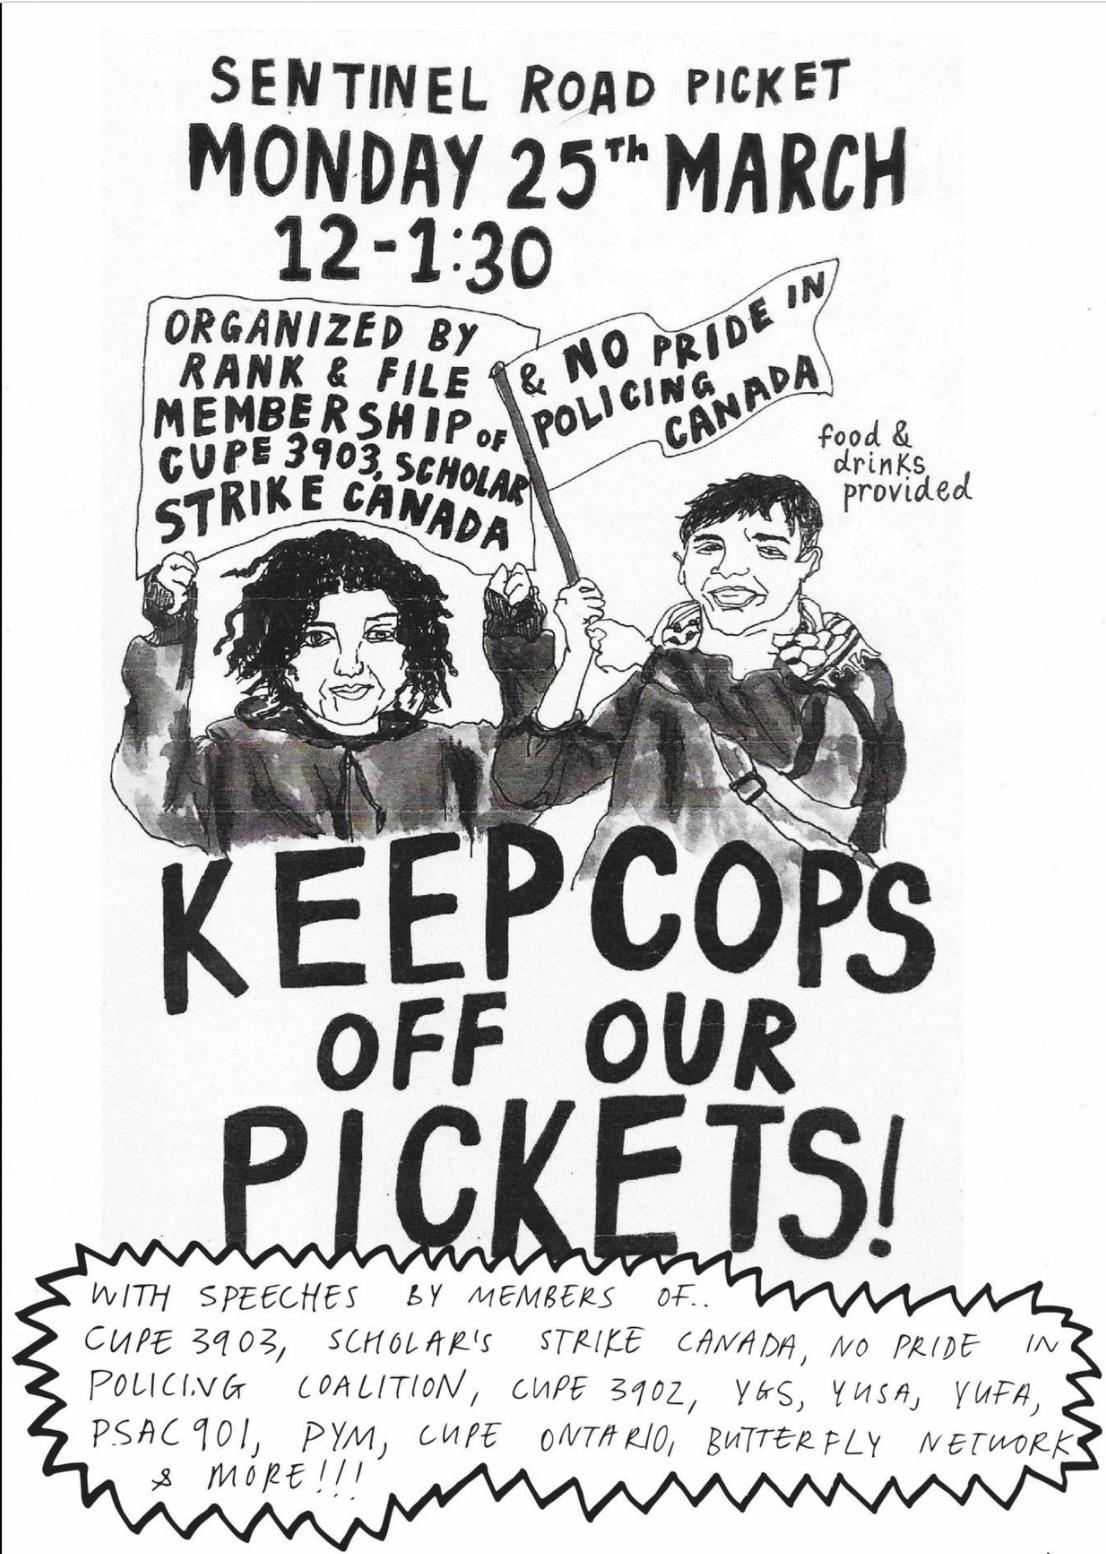 SENTINEL ROAD PICKET
MONDAY 25Th MARCH
12-1:30
ORGANIZED BY
RANK & FILE
MEMBERSHIP OF
CUPE 3903, SCHOLAR
STRIKE CANADA
& NO PRIDE IN
POLICING
CANADA
food &
drinks
provided
KEEP COPS
OFF OUR
PICKETS!
WITH SPEECHES BY MEMBERS OF..
CUPE 3903, SCHOLAR'S STRIKE CANADA, NO PRIDE IN
POLICING COALITION, CUPE 3902, YGS, YUSA, YUFA,
PSAC 901, PYM, CUPE ONTARIO, BUTTERFLY NETWORK
& MORE!!!